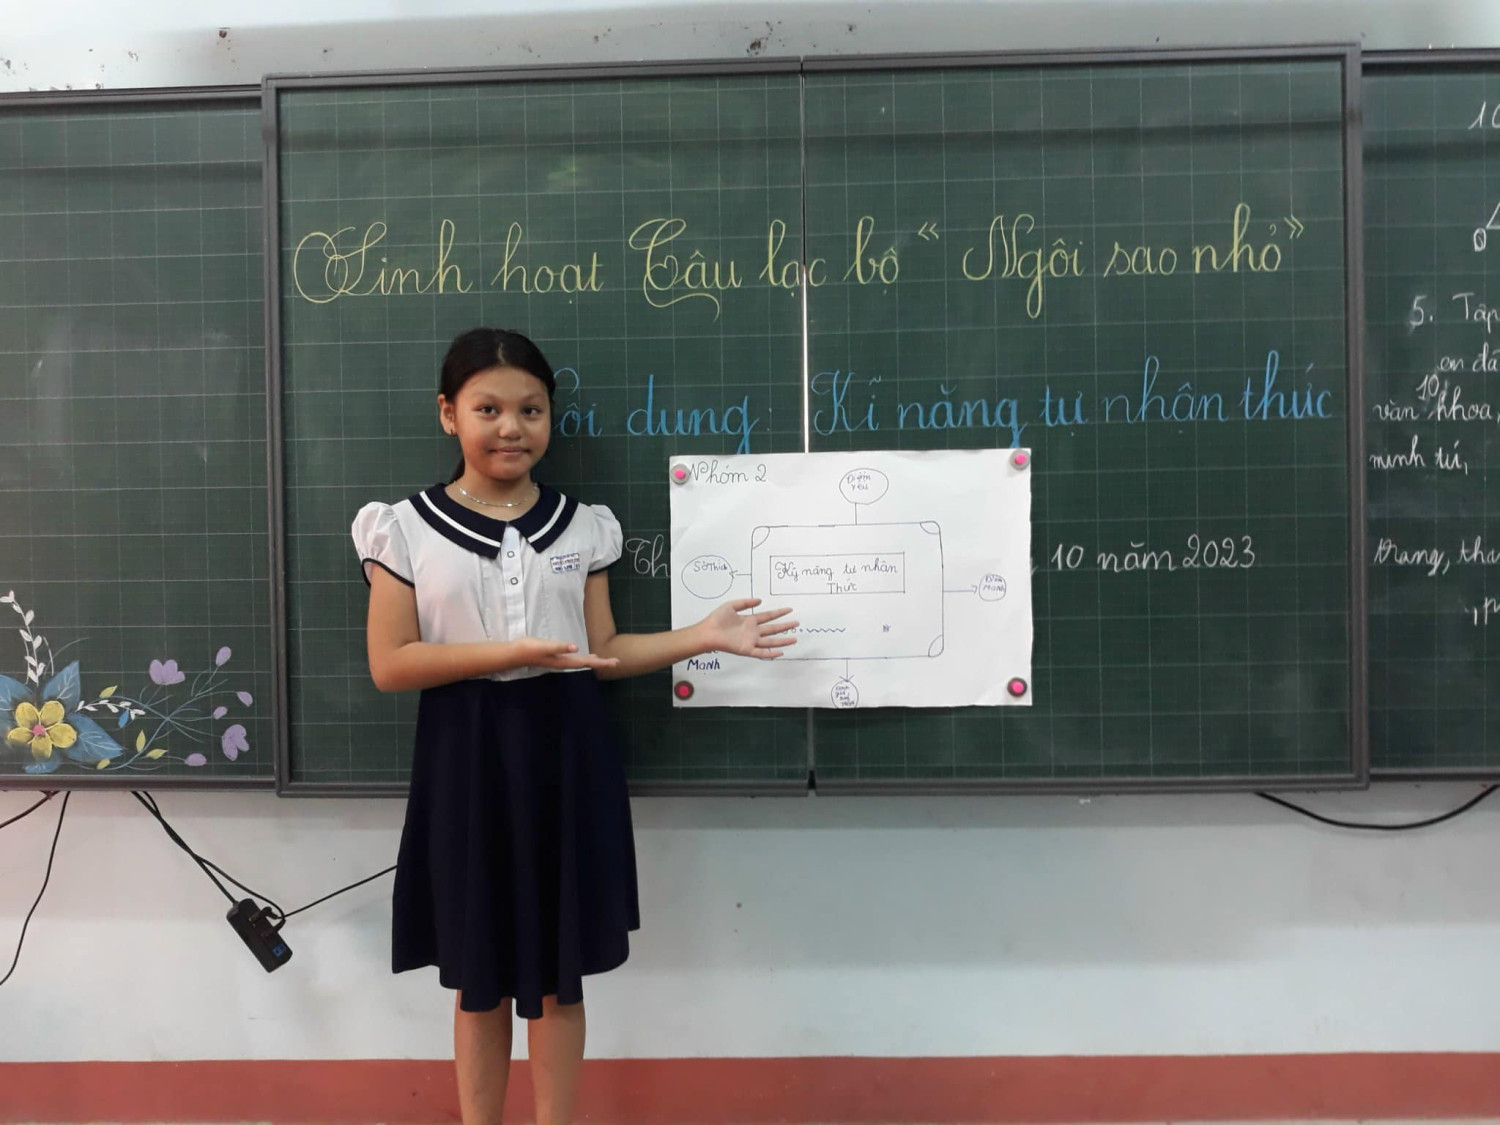 Sinh hoạt Câu lạc bộ " Ngôi sao nhỏ"
ội dung: Kĩ năng tự nhận thức
Th
10 năm 2023
Nhóm 2
Điểm yếu
Sở thích
Kỹ năng tự nhận
Thức
Mạnh
10
5. Tập
em đã
10
văn khoa,
minh tú,
trang, tha